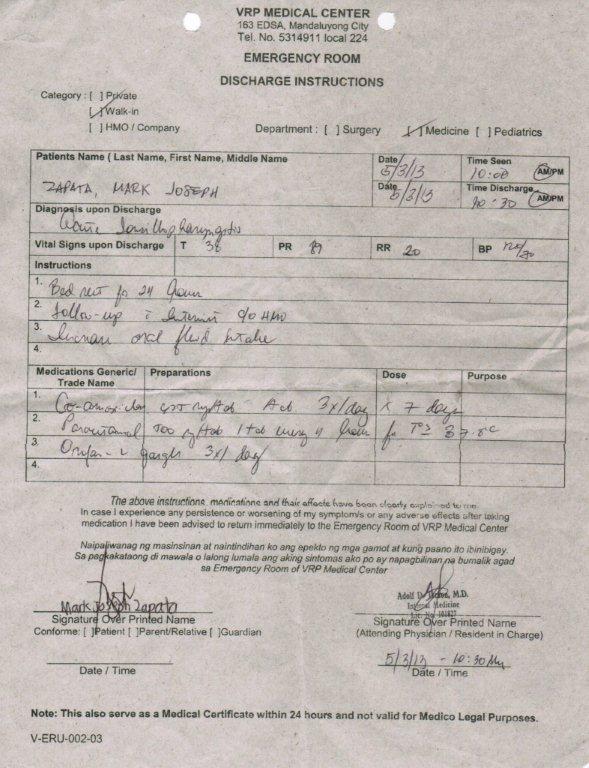 VRP MEDICAL CENTER
163 EDSA, Mandaluyong City
Tel. No. 5314911 local 224
EMERGENCY ROOM
DISCHARGE INSTRUCTIONS
Category : [ ] Private
[ ] Walk-in
[ ] HMO / Company
Department : [ ] Surgery [ ] Medicine [ ] Pediatrics
Patients Name ( Last Name, First Name, Middle Name
ZAPATA, MARK JOSEPH
Date 5/3/13
Time Seen 10:00 AM/PM
Date 5/3/13
Time Discharge 10:30 AM/PM
Diagnosis upon Discharge
Acute Tonsillopharyngitis
Vital Signs upon Discharge T 38 PR 89 RR 20 BP 120/80
Instructions
1. Bed rest for 24 hours
2. Follow-up c Internist c/o HMO
3. Increase oral fluid intake
4.
Medications Generic/ Trade Name Preparations Dose Purpose
1. Co-amoxiclav 625 mg/tab 1 tab 3x/day x 7 days
2. Paracetamol 500 mg/tab 1 tab every 4 hours for T° ≥ 37.8°C
3. gargle 3x/day
4.
The above instructions, medications and their effects have been clearly explained to me.
In case I experience any persistence or worsening of my symptom/s or any adverse effects after taking
medication I have been advised to return immediately to the Emergency Room of VRP Medical Center
Naipaliwanag ng masinsinan at naintindihan ko ang epekto ng mga gamot at kung paano ito ibinibigay.
Sa pagkakataong di mawala o lalong lumala ang aking sintomas ako po ay napagbilinan na bumalik agad
sa Emergency Room of VRP Medical Center
Mark Joseph Zapata
Signature Over Printed Name
Conforme: [ ]Patient [ ]Parent/Relative [ ]Guardian
Date / Time
Adolf D. M.D.
Internal Medicine
Lic. No. 101827
Signature Over Printed Name
(Attending Physician / Resident in Charge)
5/3/13 - 10:30 AM
Date / Time
Note: This also serve as a Medical Certificate within 24 hours and not valid for Medico Legal Purposes.
V-ERU-002-03